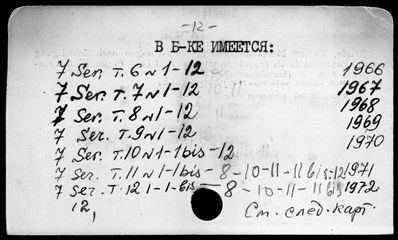 -12-
В Б-КЕ ИМЕЕТСЯ:
7 Ser. T. 6 N 1-12 1966
7 Ser. T. 7 N 1-12 1967
7 Ser. T. 8 N 1-12 1968
7 Ser. T. 9 N 1-12 1969
7 Ser. T. 10 N 1-1bis-12 1970
7 Ser. T. 11 N 1-1bis-8-10-11-11bis-12 1971
7 Ser. T. 12 1-1-bis-8-10-11-11bis 1972
12, См. след. карт